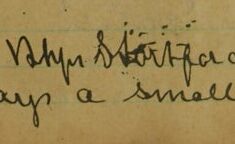 Bhps Stortford
ays a small